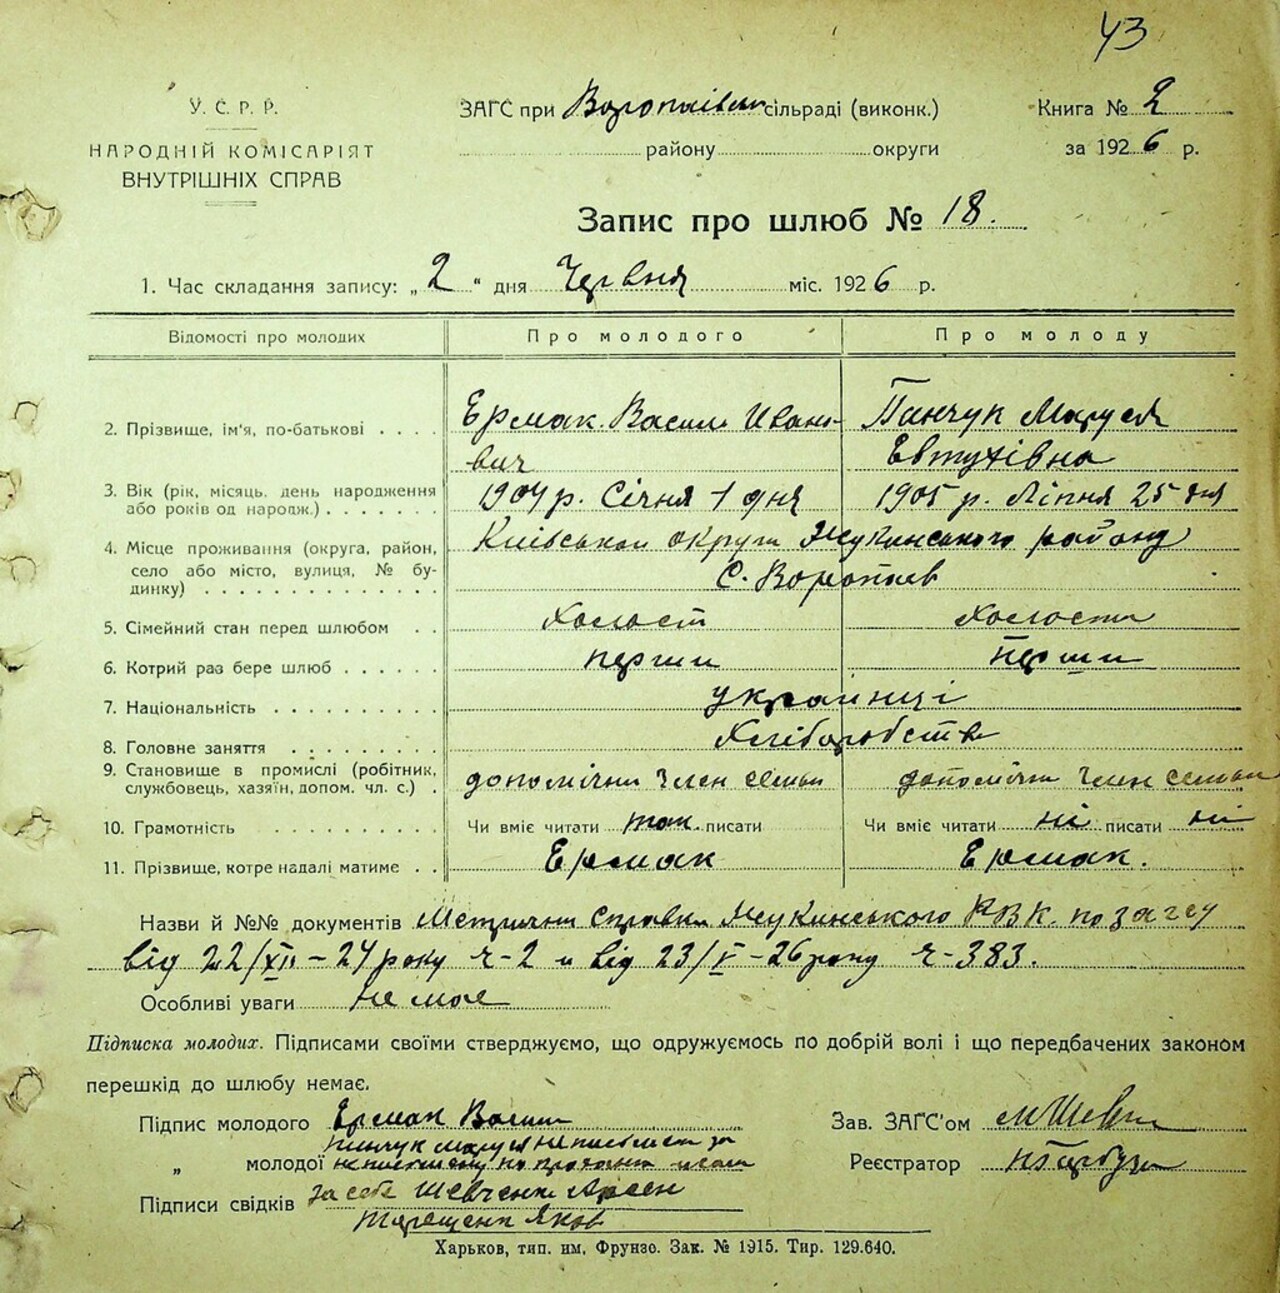 43
У. С. Р. Р.
НАРОДНІЙ КОМІСАРІЯТ
ВНУТРІШНІХ СПРАВ
ЗАГС при Воропаївськ сільраді (виконк.)
району округи
Книга № 2
за 1926 р.
Запис про шлюб № 18.
1. Час складання запису: „2“ дня Червня міс. 1926 р.
Відомості про молодих Про молодого Про молоду
2. Прізвище, ім'я, по-батькові . . . . Ермак Василь Івано- Панчук Маруся
вич Евтухівна
3. Вік (рік, місяць, день народження 1904 р. Січня 1 дня 1905 р. Ліпня 25 дня
або років од народж.)
4. Місце проживання (округа, район, Київськои округи Жукинського району
село або місто, вулиця, № бу- С. Воропаів
динку)
5. Сімейний стан перед шлюбом . . Холост Холоста
6. Котрий раз бере шлюб . . . . . перши перши
7. Національність . . . . . . . . . українці
8. Головне заняття . . . . . . . . Хліборобство
9. Становище в промислі (робітник, допомічни член семьи допомічни член семьи
службовець, хазяїн, допом. чл. с.) .
10. Грамотність . . . . . . . . . . Чи вміє читати так. писати Чи вміє читати ні писати ні
11. Прізвище, котре надалі матиме . . Ермак Ермак.
Назви й №№ документів Метрични справки Жукинського РВК. по загсу
від 22/XII – 24 року ч-2 и від 23/V – 26 року ч-383.
Особливі уваги не мае
Підписка молодих. Підписами своїми стверджуємо, що одружуємось по добрій волі і що передбачених законом
перешкід до шлюбу немає.
Підпис молодого Ермак Васил
Зав. ЗАГС'ом МШев
Панчук Маруся неписьмен за
„ молодої неписьмену по
Реєстратор
Підписи свідків за себе Шевченко Арсен
Терещенк Яков
Харьков, тип. им. Фрунзе. Зак. № 1915. Тир. 129.640.